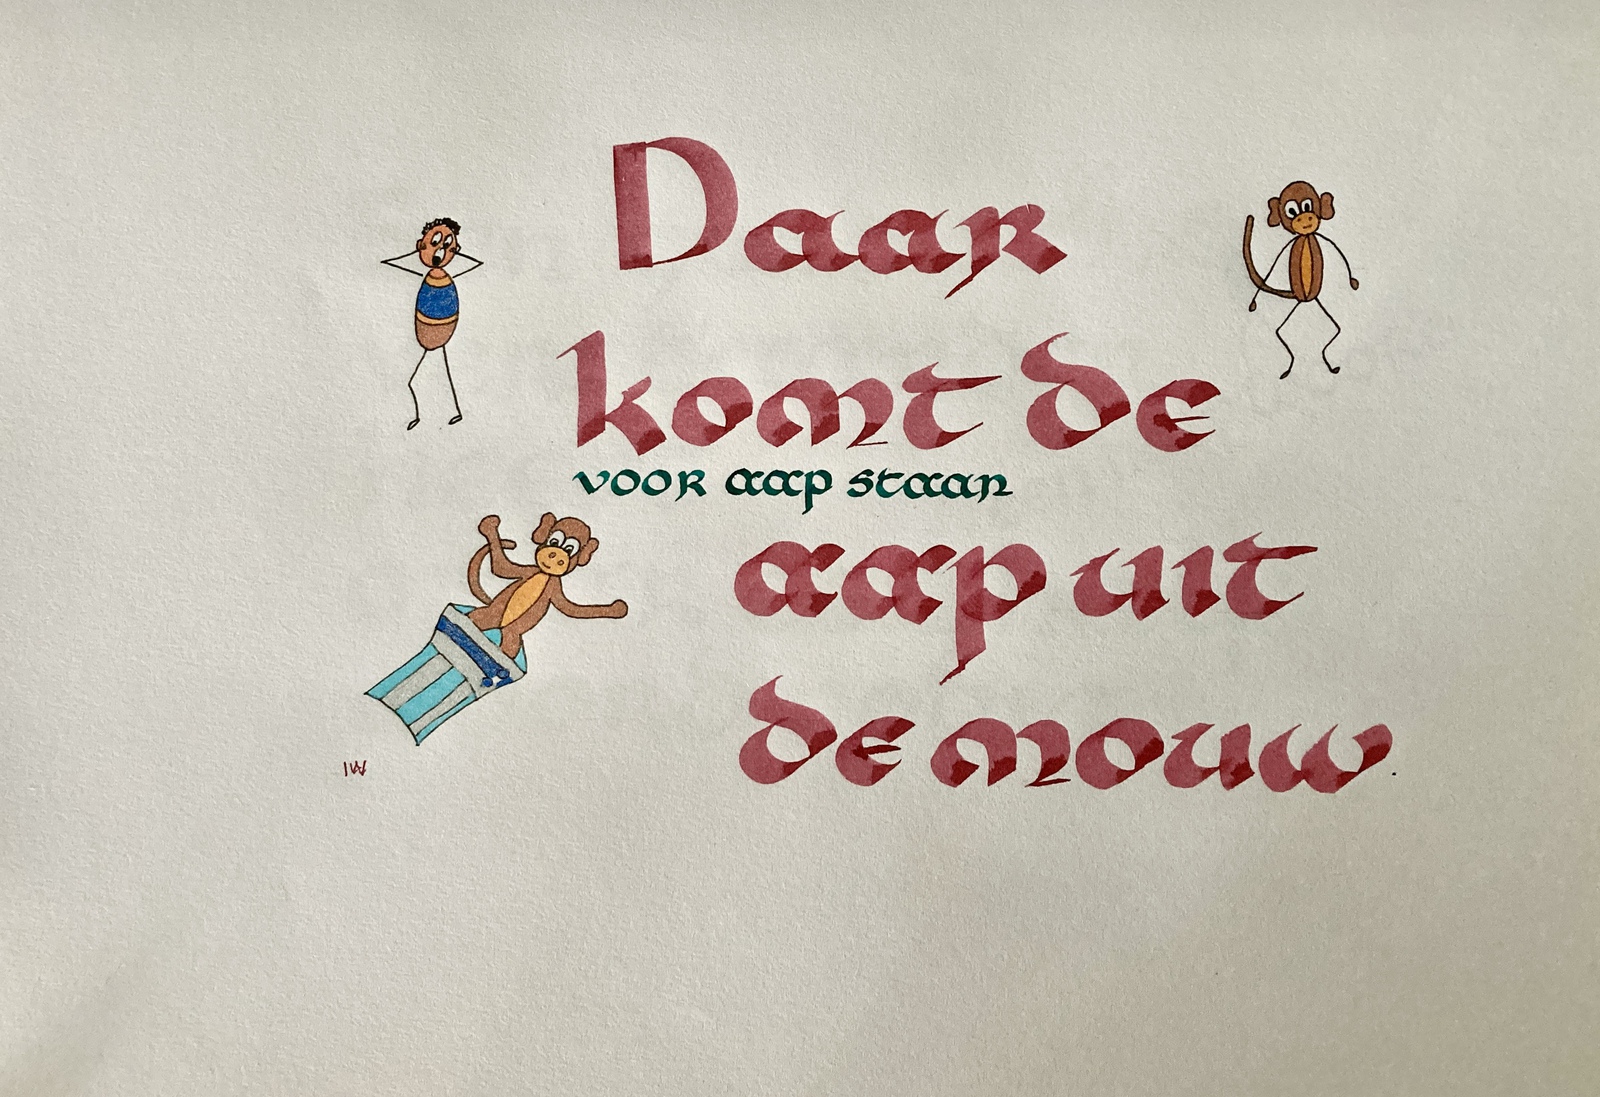 Daar
komt de
voor aap staan
aap uit
de mouw.
IW